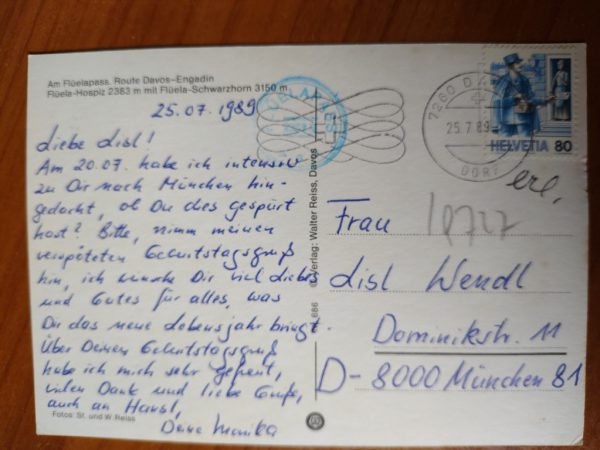 Am Flüelapass. Route Davos–Engadin
Flüela-Hospiz 2383 m mit Flüela-Schwarzhorn 3150 m
25.07.1989
Liebe Lisl!
Am 20.07. habe ich intensiv
zu Dir nach München hin-
gedacht, ob Du dies gespürt
hast? Bitte, nimm meinen
verspäteten Geburtstagsgruß
hin, ich wünsche Dir viel Liebes
und Gutes für alles, was
Dir das neue Lebensjahr bringt.
Über Deinen Geburtstagsgruß
habe ich mich sehr gefreut,
vielen Dank und liebe Grüße,
auch an Hansl,
Deine Monika
Fotos: St. und W. Reiss
686
Verlag: Walter Reiss, Davos
7260 DA
25.7.89
DORF
HELVETIA 80
erl.
Frau
Lisl Wendl
Dominikstr. 11
D-8000 München 81